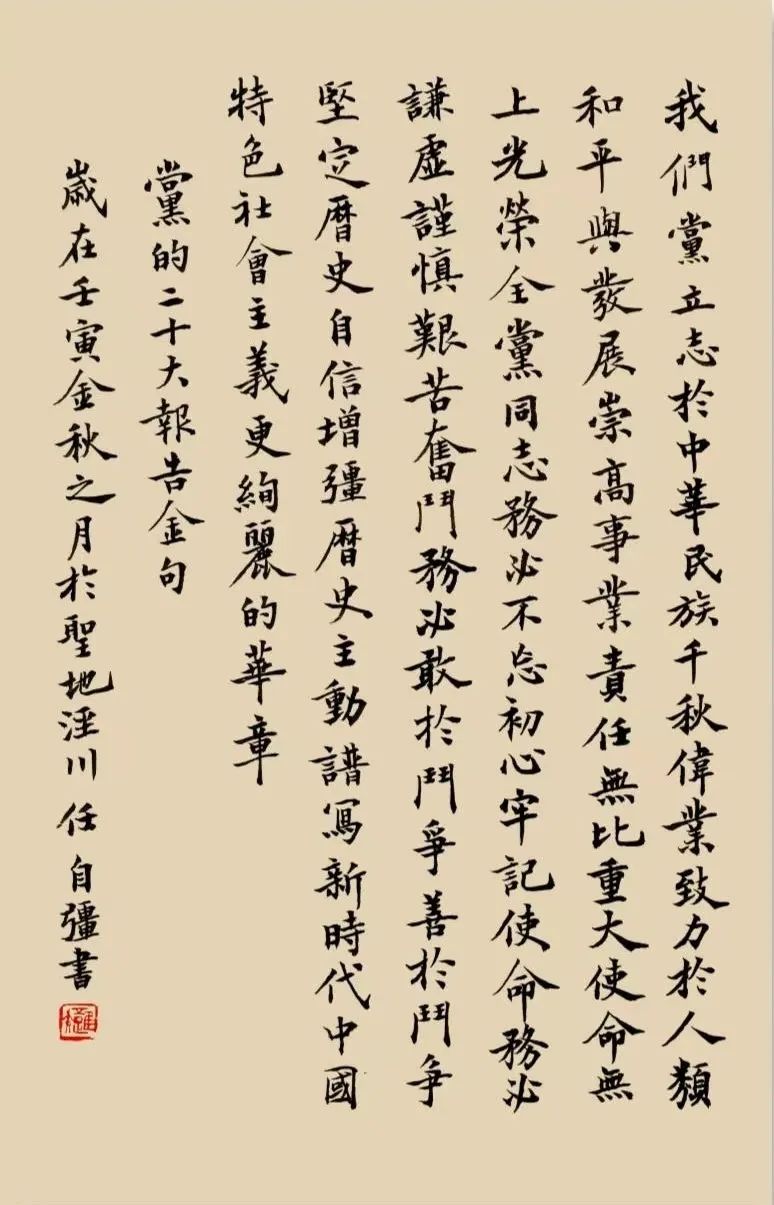 我們黨立志於中華民族千秋偉業致力於人類
和平與發展崇高事業責任無比重大使命無
上光榮全黨同志務必不忘初心牢記使命務必
謙虛謹慎艱苦奮鬥務必敢於鬥爭善於鬥爭
堅定曆史自信增彊曆史主動譜寫新時代中國
特色社會主義更絢麗的華章
黨的二十大報告金句
歲在壬寅金秋之月於聖地涇川任自彊書